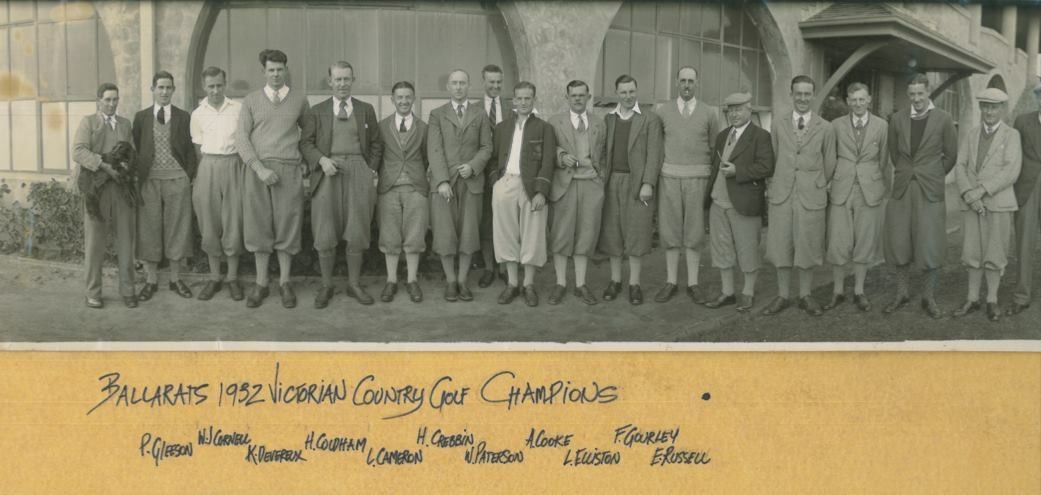 BALLARATS 1932 VICTORIAN COUNTRY GOLF CHAMPIONS.
P. GLEESON W.J CORNELL K. DEVEREUX H. COLDHAM L. CAMERON H. CREBBIN W. PATERSON A. COOKE L. ELLISTON F. GOURLEY E. RUSSELL